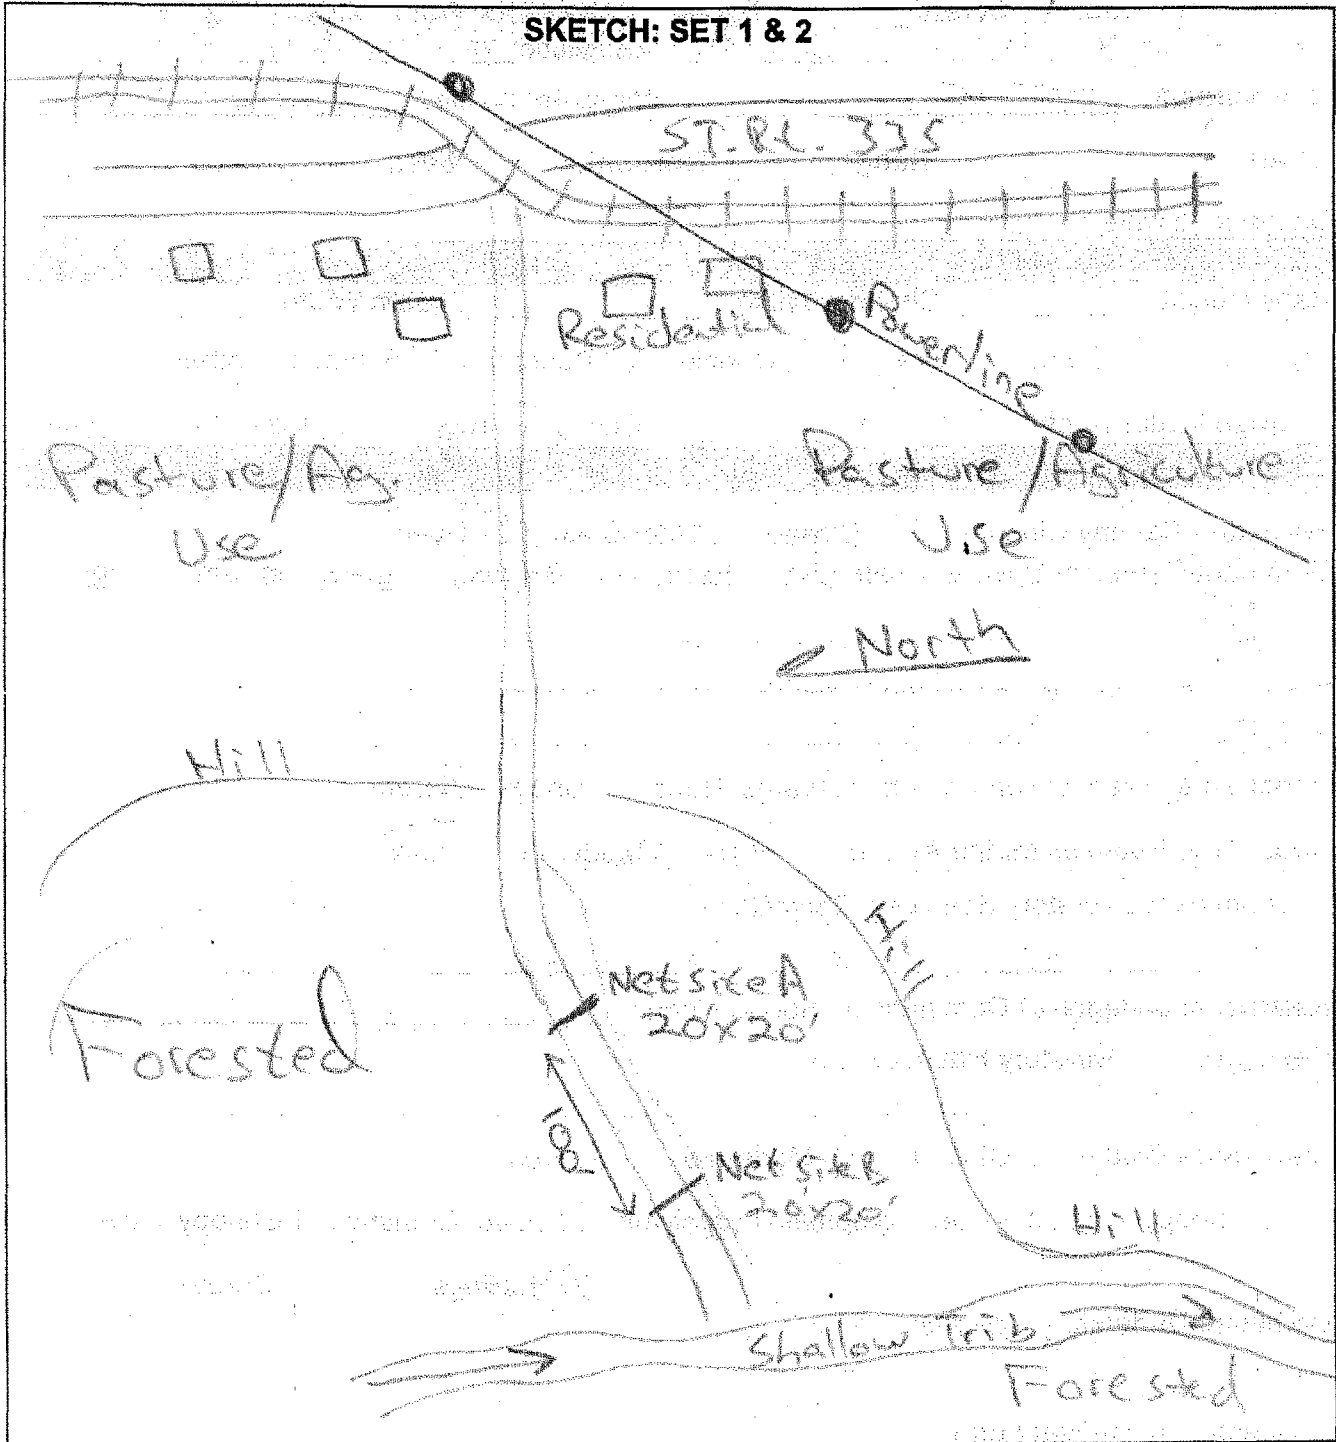 SKETCH: SET 1 & 2
ST. Rt. 335
Residential
Powerline
Pasture/Ag.
Use
Pasture/Agriculture
Use
North
Hill
Hill
Net site A
20'x20'
Forested
100'
Net Site B
20x20'
Hill
Shallow Trib
Forested